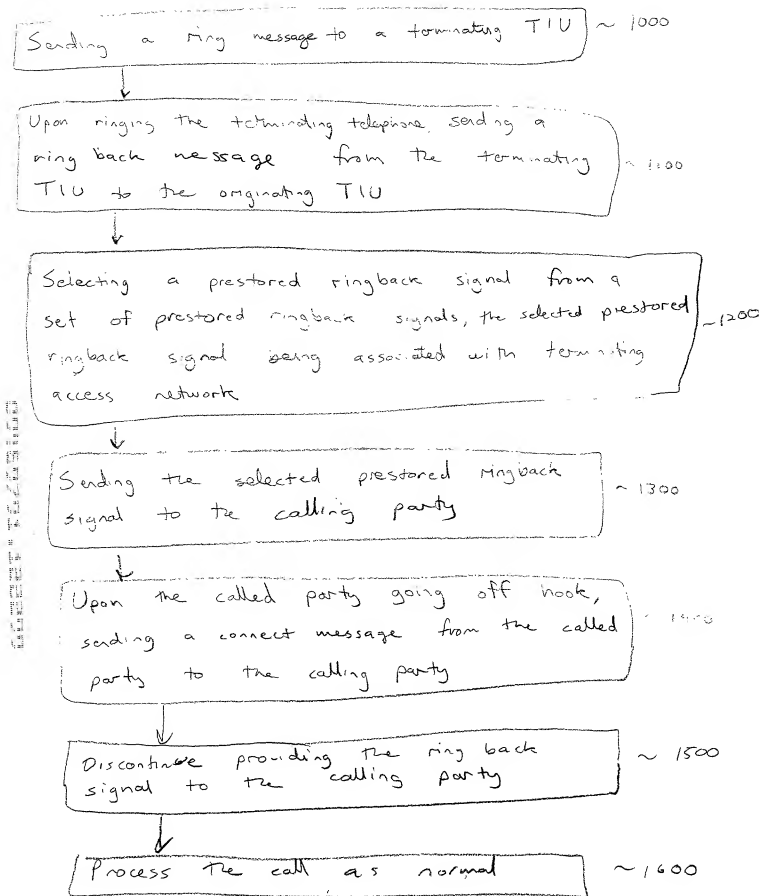 Sending a ring message to a terminating TIU ~ 1000
Upon ringing the terminating telephone, sending a
ring back message from the terminating
TIU to the originating TIU ~ 1100
Selecting a prestored ringback signal from a
set of prestored ringback signals, the selected prestored
ringback signal being associated with terminating
access network ~ 1200
Sending the selected prestored ringback
signal to the calling party ~ 1300
Upon the called party going off hook,
sending a connect message from the called
party to the calling party
Discontinue providing the ring back
signal to the calling party ~ 1500
Process the call as normal ~ 1600